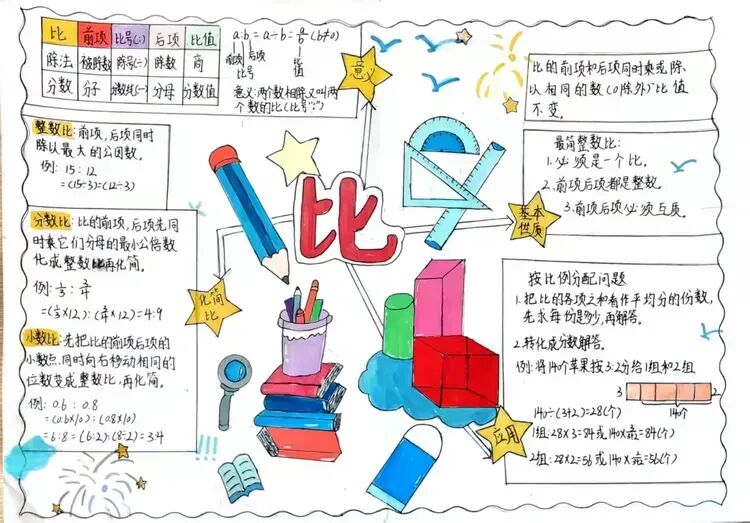 比 前项 比号(:) 后项 比值
除法 被除数 除号(÷) 除数 商
分数 分子 分数线(—) 分母 分数值
a:b=a÷b=a/b(b≠0)
前项 后项
比号
比值
意义:两个数相除又叫两
个数的比(比号":")
意义
整数比:前项,后项同时
除以最大的公因数。
例:15:12
=(15÷3)=(12÷3)
分数比:比的前项,后项先同
时乘它们分母的最小公倍数
化成整数再化简。
=4:9
小数比:先把比的前项后项的
小数点,同时向右移动相同的
位数变成整数比,再化简。
例:0.6:0.8
=(0.6×10):(0.8×10)
=6:8=(6÷2):(8÷2)=3:4
化简
比
比
比的前项和后项同时乘或除
以相同的数(0除外)比值
不变。
最简整数比:
1.必须是一个比。
2.前项后项都是整数
3.前项后项必须互质。
基本
性质
按比例分配问题
1.把比的各项之和看作平均分的份数,
先求每份是多少,再解答。
2.转化成分数解答。
例:将140个苹果按3:2分给1组和2组
3 2
140个
140÷(3+2)=28(个)
1组:28×3=84或140×3/3+2=84(个)
2组:28×2=56或140×2/3+2=56(个)
应用